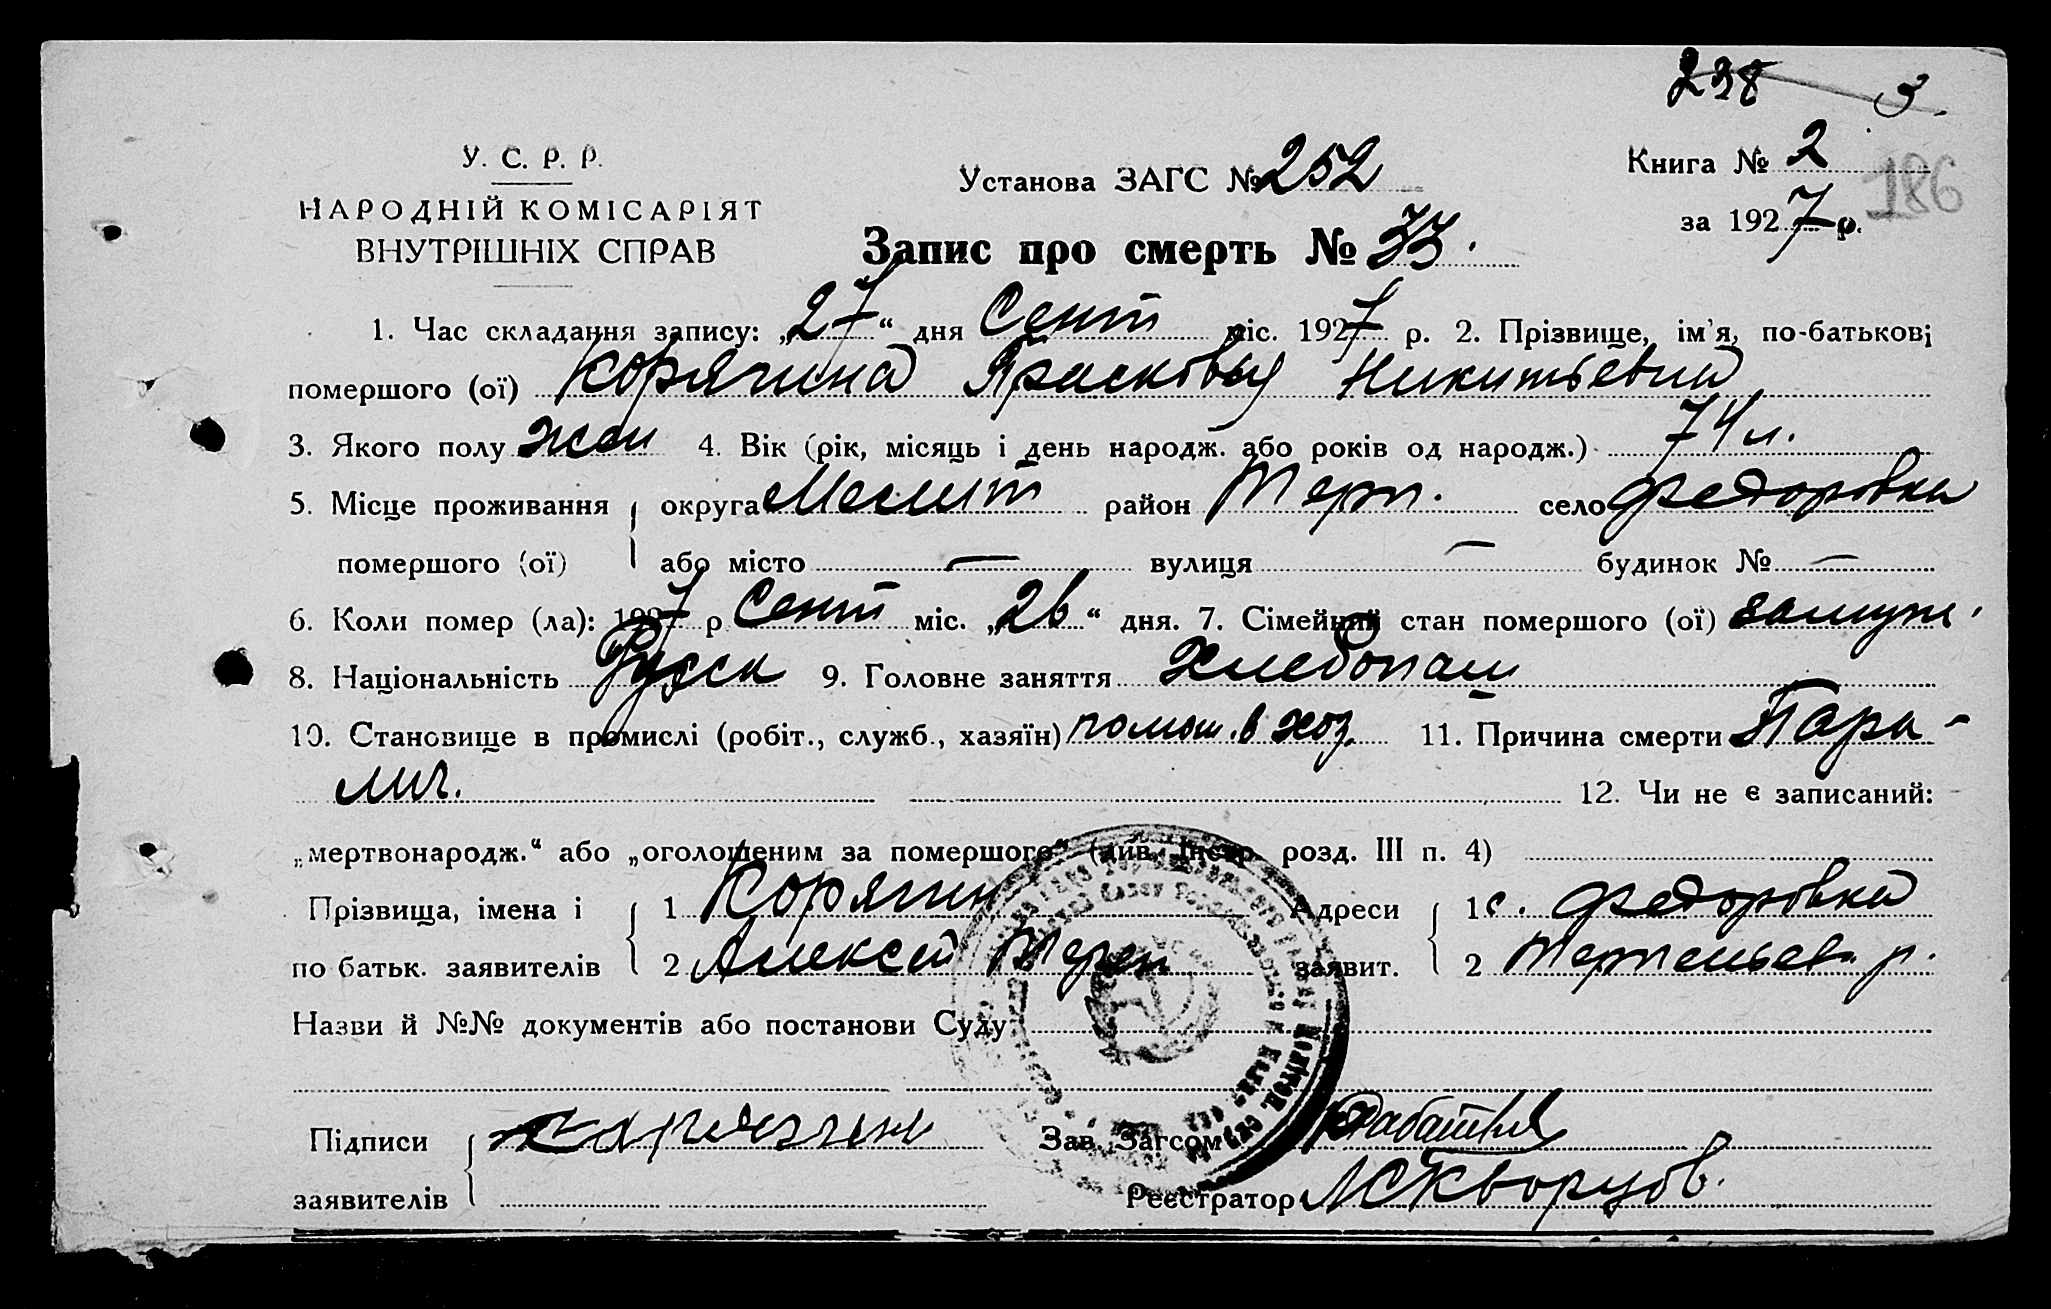 238 3
У. С. Р. Р.
НАРОДНІЙ КОМІСАРІЯТ
ВНУТРІШНІХ СПРАВ
Установа ЗАГС № 252
Книга № 2
186
за 1927 р.
Запис про смерть № 33.
1. Час складання запису: „27“ дня Сент міс. 1927 р. 2. Прізвище, ім'я, по-батькові
помершого (ої) Корячина Прасковья Никитьевна
3. Якого полу жен 4. Вік (рік, місяць і день народж. або років од народж.) 74 л.
5. Місце проживання округа Мелит район Терп. село Федоровка
помершого (ої) або місто — вулиця — будинок № —
6. Коли помер (ла): 1927 р Сент міс. „26“ дня. 7. Сімейний стан помершого (ої) замуж.
8. Національність Русск 9. Головне заняття Хлебопаш
10. Становище в промислі (робіт., служб., хазяїн) помощ. в хоз. 11. Причина смерти Пара-
лич. 12. Чи не є записаний:
„мертвонародж.“ або „оголошеним за помершого“ (див. Інстр. розд. III п. 4)
Прізвища, імена і 1 Корячин Адреси 1 с. Федоровка
по батьк. заявителів 2 Алексей Терен заявит. 2 Терпеньев. р.
Назви й №№ документів або постанови Суду
Підписи Карячин Зав. Загсом
заявителів Реєстратор Скворцов.